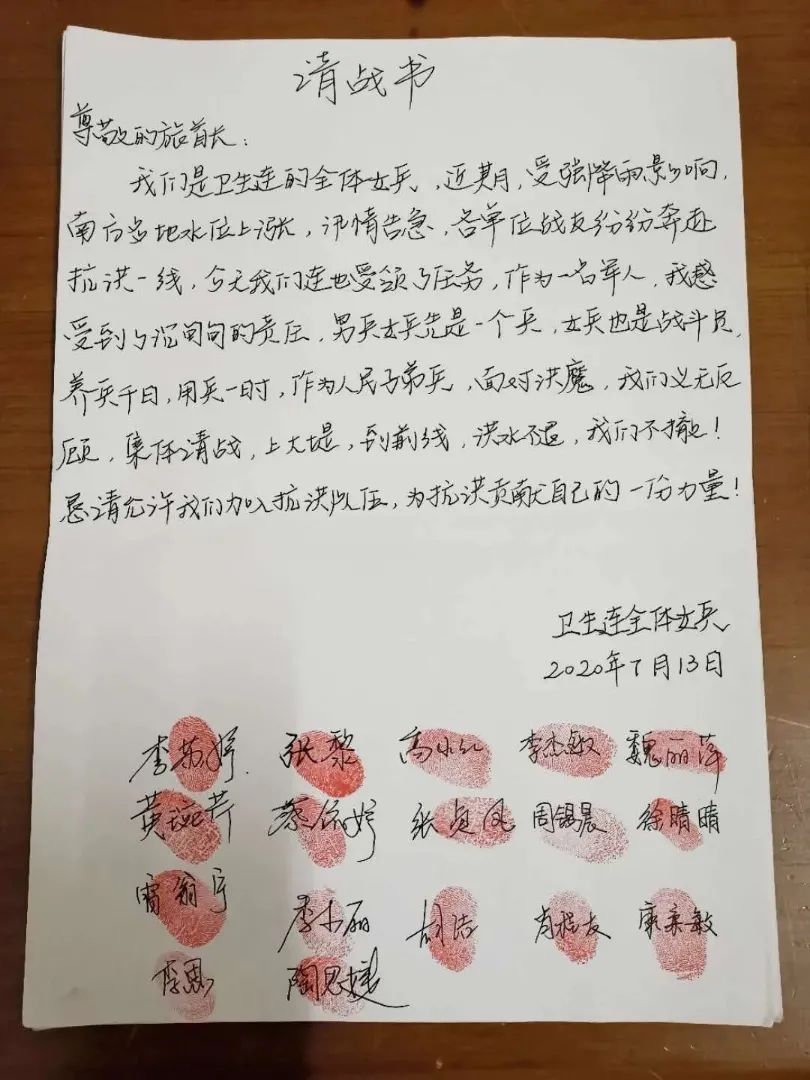 请战书
尊敬的旅首长：
我们是卫生连的全体女兵，近期，受强降雨影响，
南方多地水位上涨，汛情告急，各单位战友纷纷奔赴
抗洪一线，今天我们连也受领了任务，作为一名军人，我感
受到了沉甸甸的责任，男兵女兵先是一个兵，女兵也是战斗员，
养兵千日，用兵一时，作为人民子弟兵，面对洪魔，我们义无反
顾，集体请战，上大堤，到前线，洪水不退，我们不撤！
恳请允许我们加入抗洪队伍，为抗洪贡献自己的一份力量！
卫生连全体女兵
2020年7月13日
李婷 张黎 高小红 李杰敏 魏丽萍
黄芹 蔡婷 张贞凤 周锡晨 徐晴晴
雷宇 李小丽 胡洁 肖程友 康柔敏
李恩 陶思媛